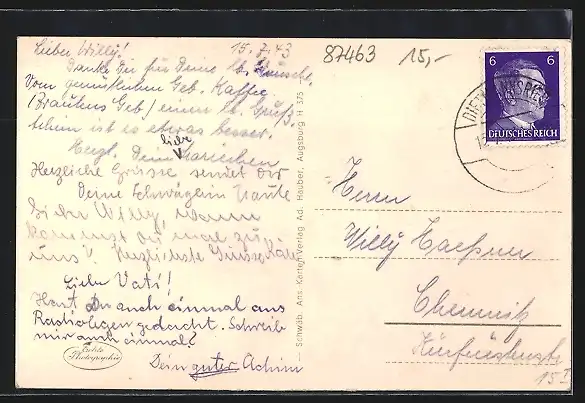 Lieber Willy! 15.7.43
Danke Dir für Deine lb. Wünsche.
Vom gemütlichen Geb. Kaffee
(Brautens Geb) einen lb. Gruß.
ist es etwas besser.
Herzl. Dein Mariechen
liebe
Herzliche Grüsse sendet Dir
Deine Schwägerin Traute
Lieber Willy, wann
kommst du mal zu
uns? Herzlichste Grüsse
Lieber Vati!
Hast du auch einmal ans
Radioligen gedacht. Schreib
mir auch einmal?
Dein guter Achim
Echte
Photographie
Schwäb. Ans.-Karten-Verlag Ad. Hauber, Augsburg H 375
87463 15,-
6 6
DEUTSCHES REICH
Herrn
Willy
Chemnitz
Kurfürstenstr
15 I